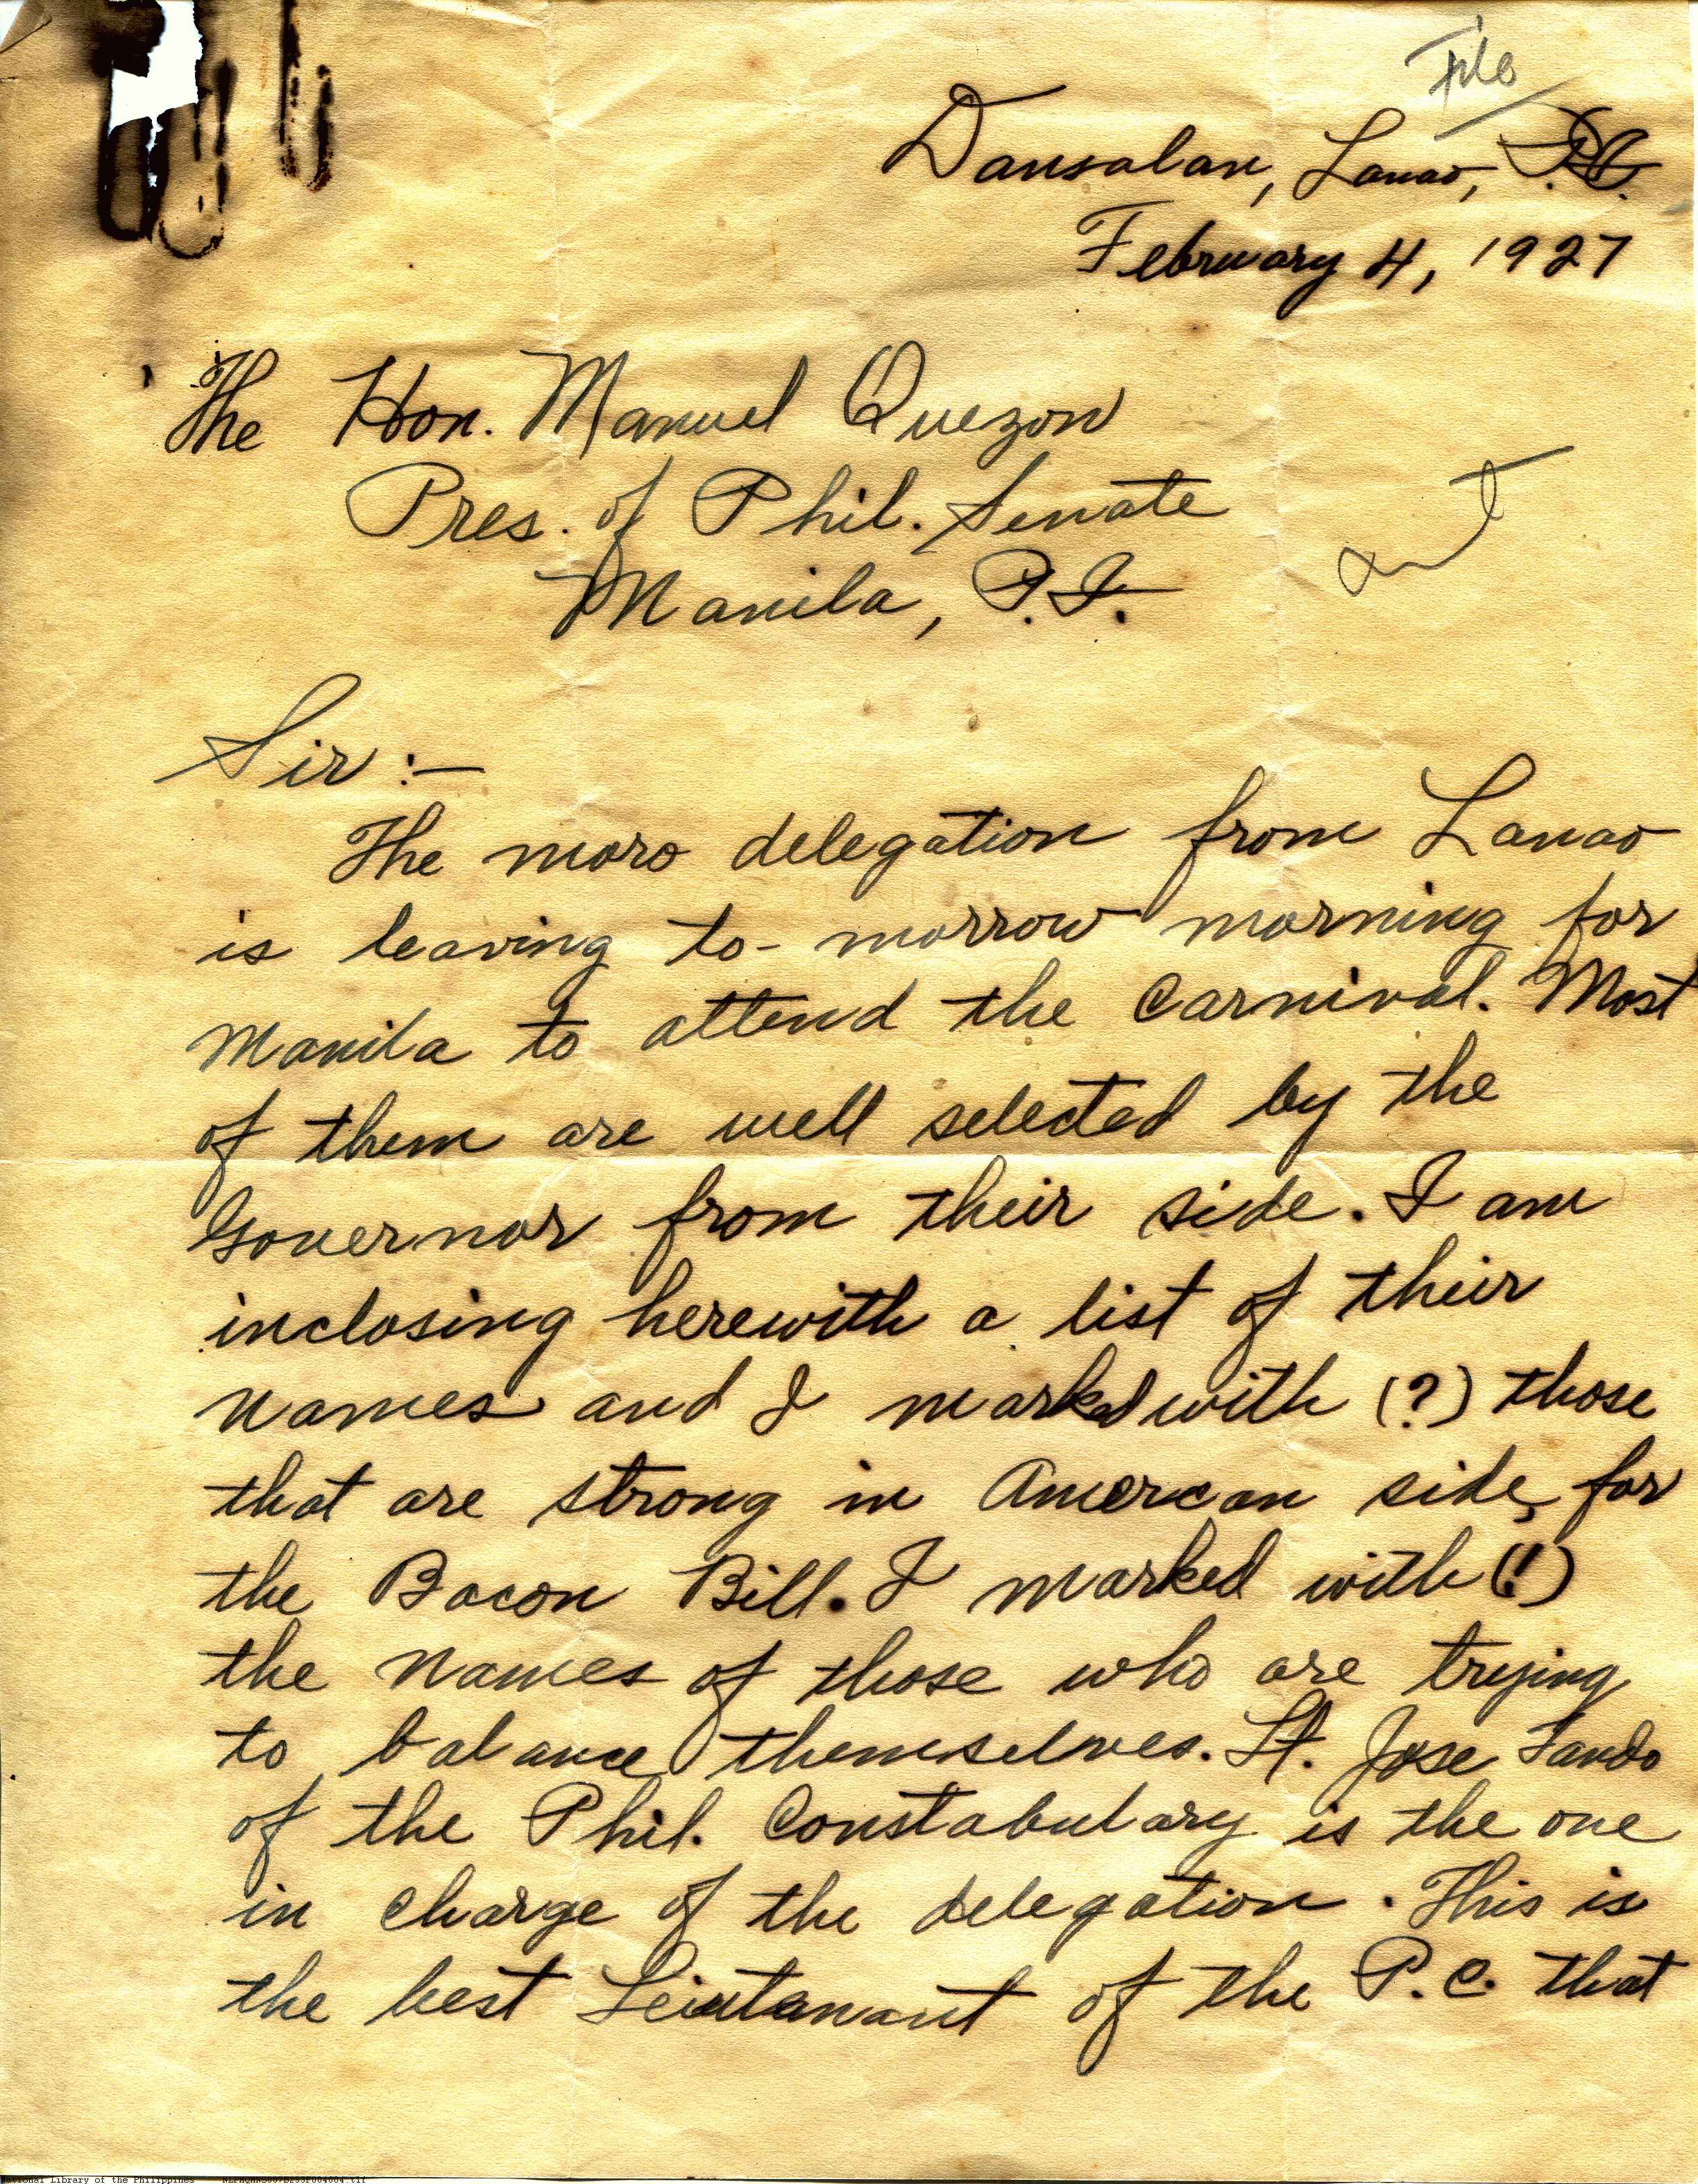 File
Dansalan, Lanao, P.I.
February 4, 1927
The Hon. Manuel Quezon
Pres. of Phil. Senate
Manila, P.I.
Sir:—
The moro delegation from Lanao
is leaving to-morrow morning for
Manila to attend the Carnival. Most
of them are well selected by the
Governor from their side. I am
inclosing herewith a list of their
names and I marked with (?) those
that are strong in American side, for
the Bacon Bill. I marked with (!)
the names of those who are trying
to balance themselves. Lt. Jose Tando
of the Phil. Constabulary is the one
in charge of the delegation. This is
the best Leiutenant of the P.C. that
National Library of the Philippines